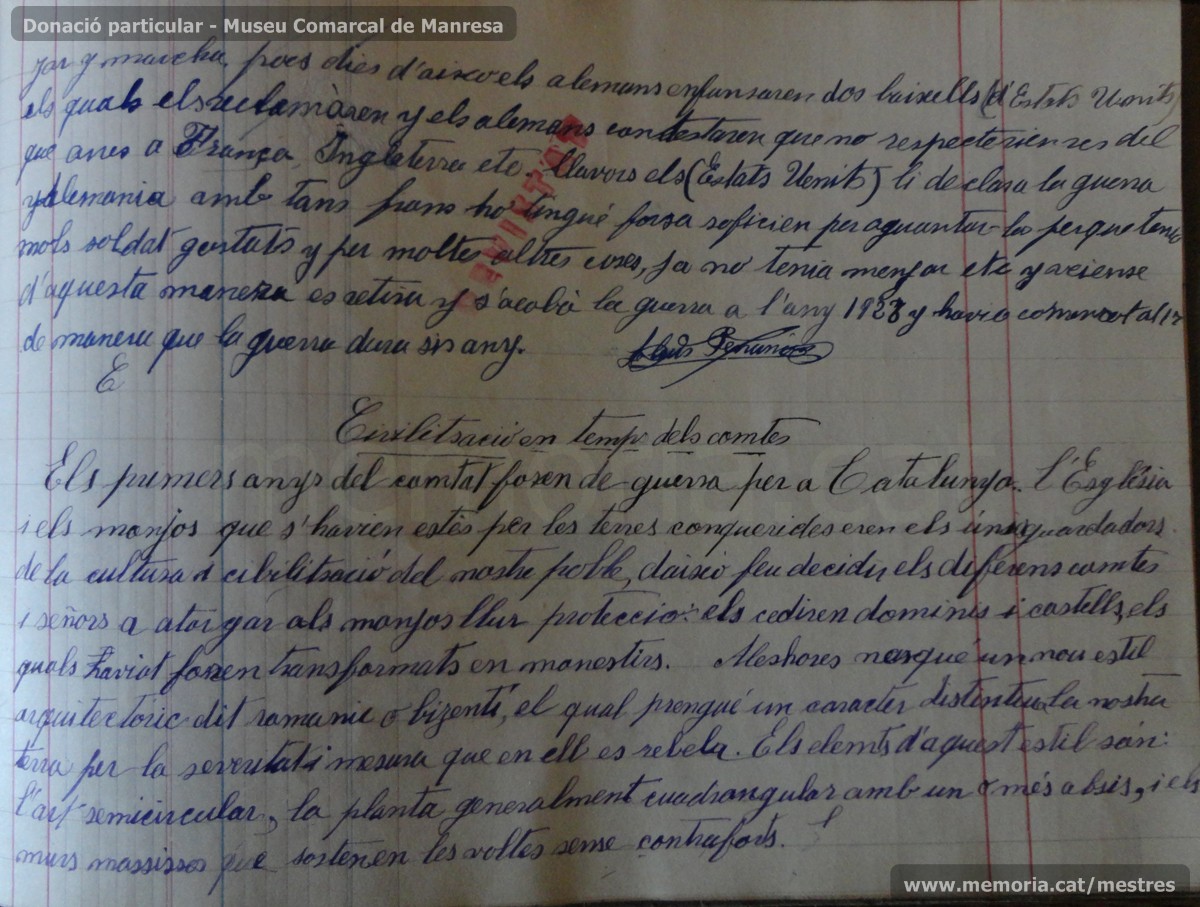 Donació particular - Museu Comarcal de Manresa
jar y marcha, pocs dies d'aixo els alemans enfunsaren dos baixells (d'Estats Units)
els quals els reclamàren y els alemans contestaren que no respecterien res del
que anes a França, Inglaterra etc. Llavors els (Estats Unit) li declara la guerra
y Alemania amb tans frans no tingué forsa soficien per aguantar-lo perque tenia
mols soldat gastats y per moltes altres coses, ja no tenia menjar etc y veiense
d'aquesta manera es retira y s'acabà la guerra a l'any 1928 y havia comensat al 17
de manera que la guerra dura sis any.
E
Civilitsació en temp dels comtes
Els primers anys del comtat foren de guerra per a Catalunya. L'Església
i els monjos que s'havien estés per les terres conquerides eren els únics guardadors
de la cultura i cibilitsació del nostre poble, daixó feu decidir els diferens comtes
i señors a atorgar als monjos llur protecció: els cediren dominis i castells, els
quals haviat foren transformats en monestirs. Aleshores nasqué un nou estil
arquitectóric dit romanic o bizentí, el qual prengué un caracter distentiu la nostra
terra per la severitat i mesura que en ell es rebela. Els elemts d'aquest estil són:
l'art semicircular, la planta generalment cuadrangular amb un o més absis, i els
murs massissos que sostenen les voltes sense contraforts.
www.memoria.cat/mestres